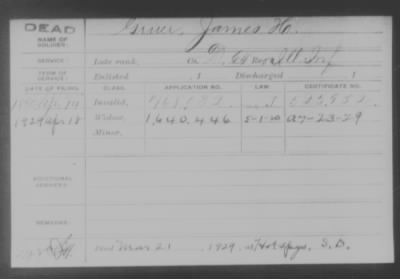 DEAD
NAME OF SOLDIER:
Gruer, James H.
SERVICE:
Late rank, Co. D, 69 Reg't Ill. Inf
TERM OF SERVICE:
Enlisted , 1 Discharged , 1
DATE OF FILING. CLASS. APPLICATION NO. LAW. CERTIFICATE NO.
Invalid,
1929 Apr 18 Widow, 1,640,446 5-1-20 a7-23-29
Minor,
ADDITIONAL SERVICES:
REMARKS:
died Mar 21 1929, at Hot Spgs, S.D.